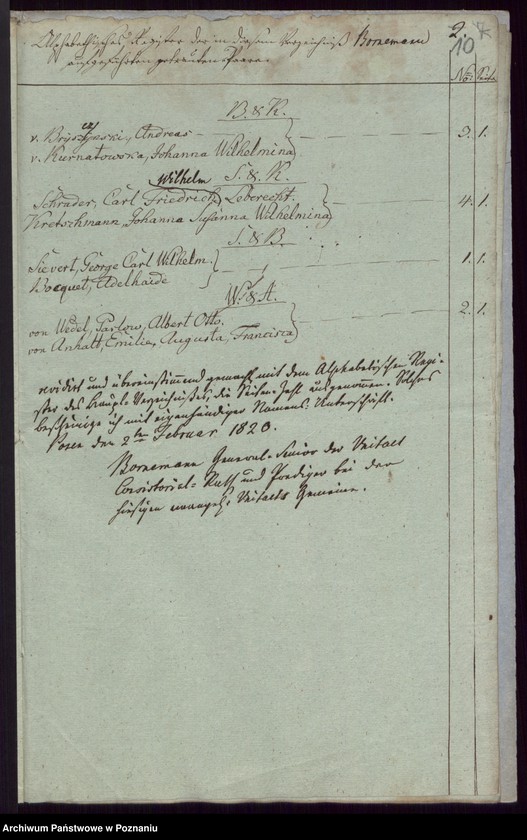 Alphabetisches Register der in diesem Verzeichniß Bornemann 2.
aufgeführten getrauten Paare. 10
No: Seite
B. & K.
v. Bryszgeski, Andreas
v. Kurnatowska, Johanna Wilhelmina 3. 1.
Wilhelm S. & K.
Schrader, Carl Friedrich Leberecht.
Kretschmann, Johanna Susanna Wilhelmina 4. 1.
S. & B.
Sievert, George Carl Wilhelm.
Bocquet, Adelhaide 1. 1.
W. & A.
von Wedel, Parlow, Albert Otto.
von Anhalt, Emilia, Augusta, Francisca 2. 1.
revidirt und übereinstimmend gemacht mit dem Alphabetischen Regi-
ster des Haupt-Verzeichnißes, die Seiten-Zahl ausgenommen. Solches
bescheinige ich mit eigenhändiger Namens-Unterschrift.
Posen den 2ten Februar 1820.
Bornemann General-Senior der Unitaet
Consistorial-Rath und Prediger bei der
hiesigen evangel: Unitaets Gemeine.
Archiwum Państwowe w Poznaniu